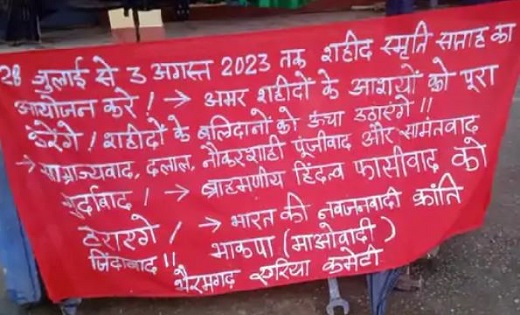 28 जुलाई से 3 अगस्त 2023 तक शहीद स्मृति सप्ताह का
आयोजन करे! → अमर शहीदों के आशयों को पूरा
करेंगे! शहीदों के बलिदानों को ऊंचा उठाएंगे!!
→ साम्राज्यवाद, दलाल, नौकरशाही पूंजीवाद और सामंतवाद
मुर्दाबाद! → ब्राहमणीय हिंदत्व फासीवाद को
हराएगे! → भारत की नवजनवादी क्रांति
जिंदाबाद!! भाकपा (माओवादी)
भैरमगढ़ एरिया कमेटी